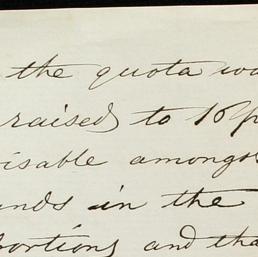 the quota wa
raised to 16 p
isable amongs
unds in the
portions and tha